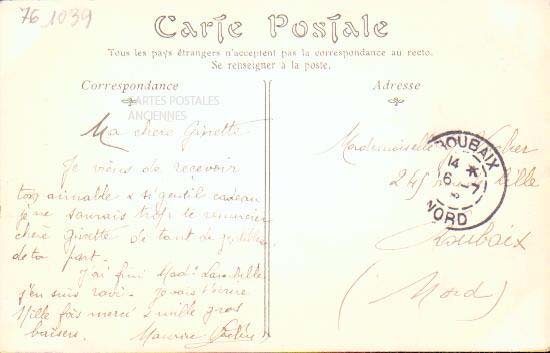 76 1039
Carte Postale
Tous les pays étrangers n'acceptent pas la correspondance au recto.
Se renseigner à la poste.
Correspondance
Adresse
ARTES POSTALES
ANCIENNES
Ma chère Ginette
Je viens de recevoir
ton aimable & si gentil cadeau
je ne saurais trop te remercier
chère Ginette de tant de gentillesse
de ta part.
J'ai fini Mad.
j'en suis ravi. Je vais t'écrire
Mille fois merci & mille gros
baisers.
Maurice
Mademoiselle
245 Lille
Roubaix
(Nord)
ROUBAIX
14
6 - 7
NORD